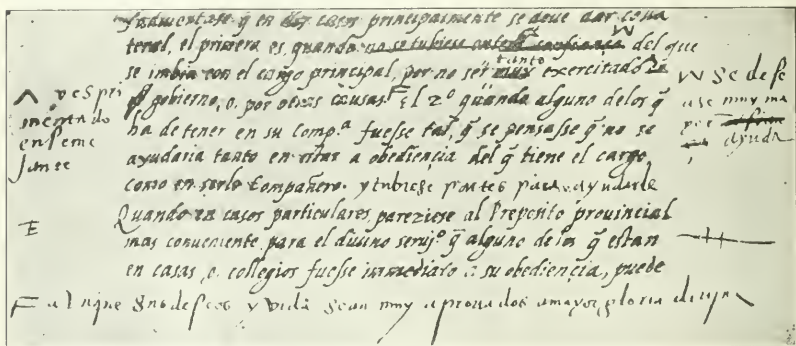 fudimentase q̃ en dos casos principalmente se deve dar cola
teral, el primero es, quando no se tubiese entera confiança W del que
se imbia con el cargo principal, por no ser tanto muy exercitado
gobierno, o, por otras causas F El 2º quando alguno delos q̃
ha de tener en su Comp.ª fuesse tal, q̃ se pensasse q̃ no se
ayudaria tanto en estar a obediencia del q̃ tiene el cargo,
como en serle Compañero. y tubiese partes para ayudarle
Quando en casos particulares, pareziese al Preposito provincial
mas conveniente, para el divino servj.º q̃ alguno delos q̃ estan
en casas, o, collegios fuesse immediato a su obediencia, puede
F aunque sus deseos y vida sean muy aprovados a mayor gloria divina
Λ y espri
mentado
en seme
jante
E
W se dese
ase muy ma
yor
ayuda